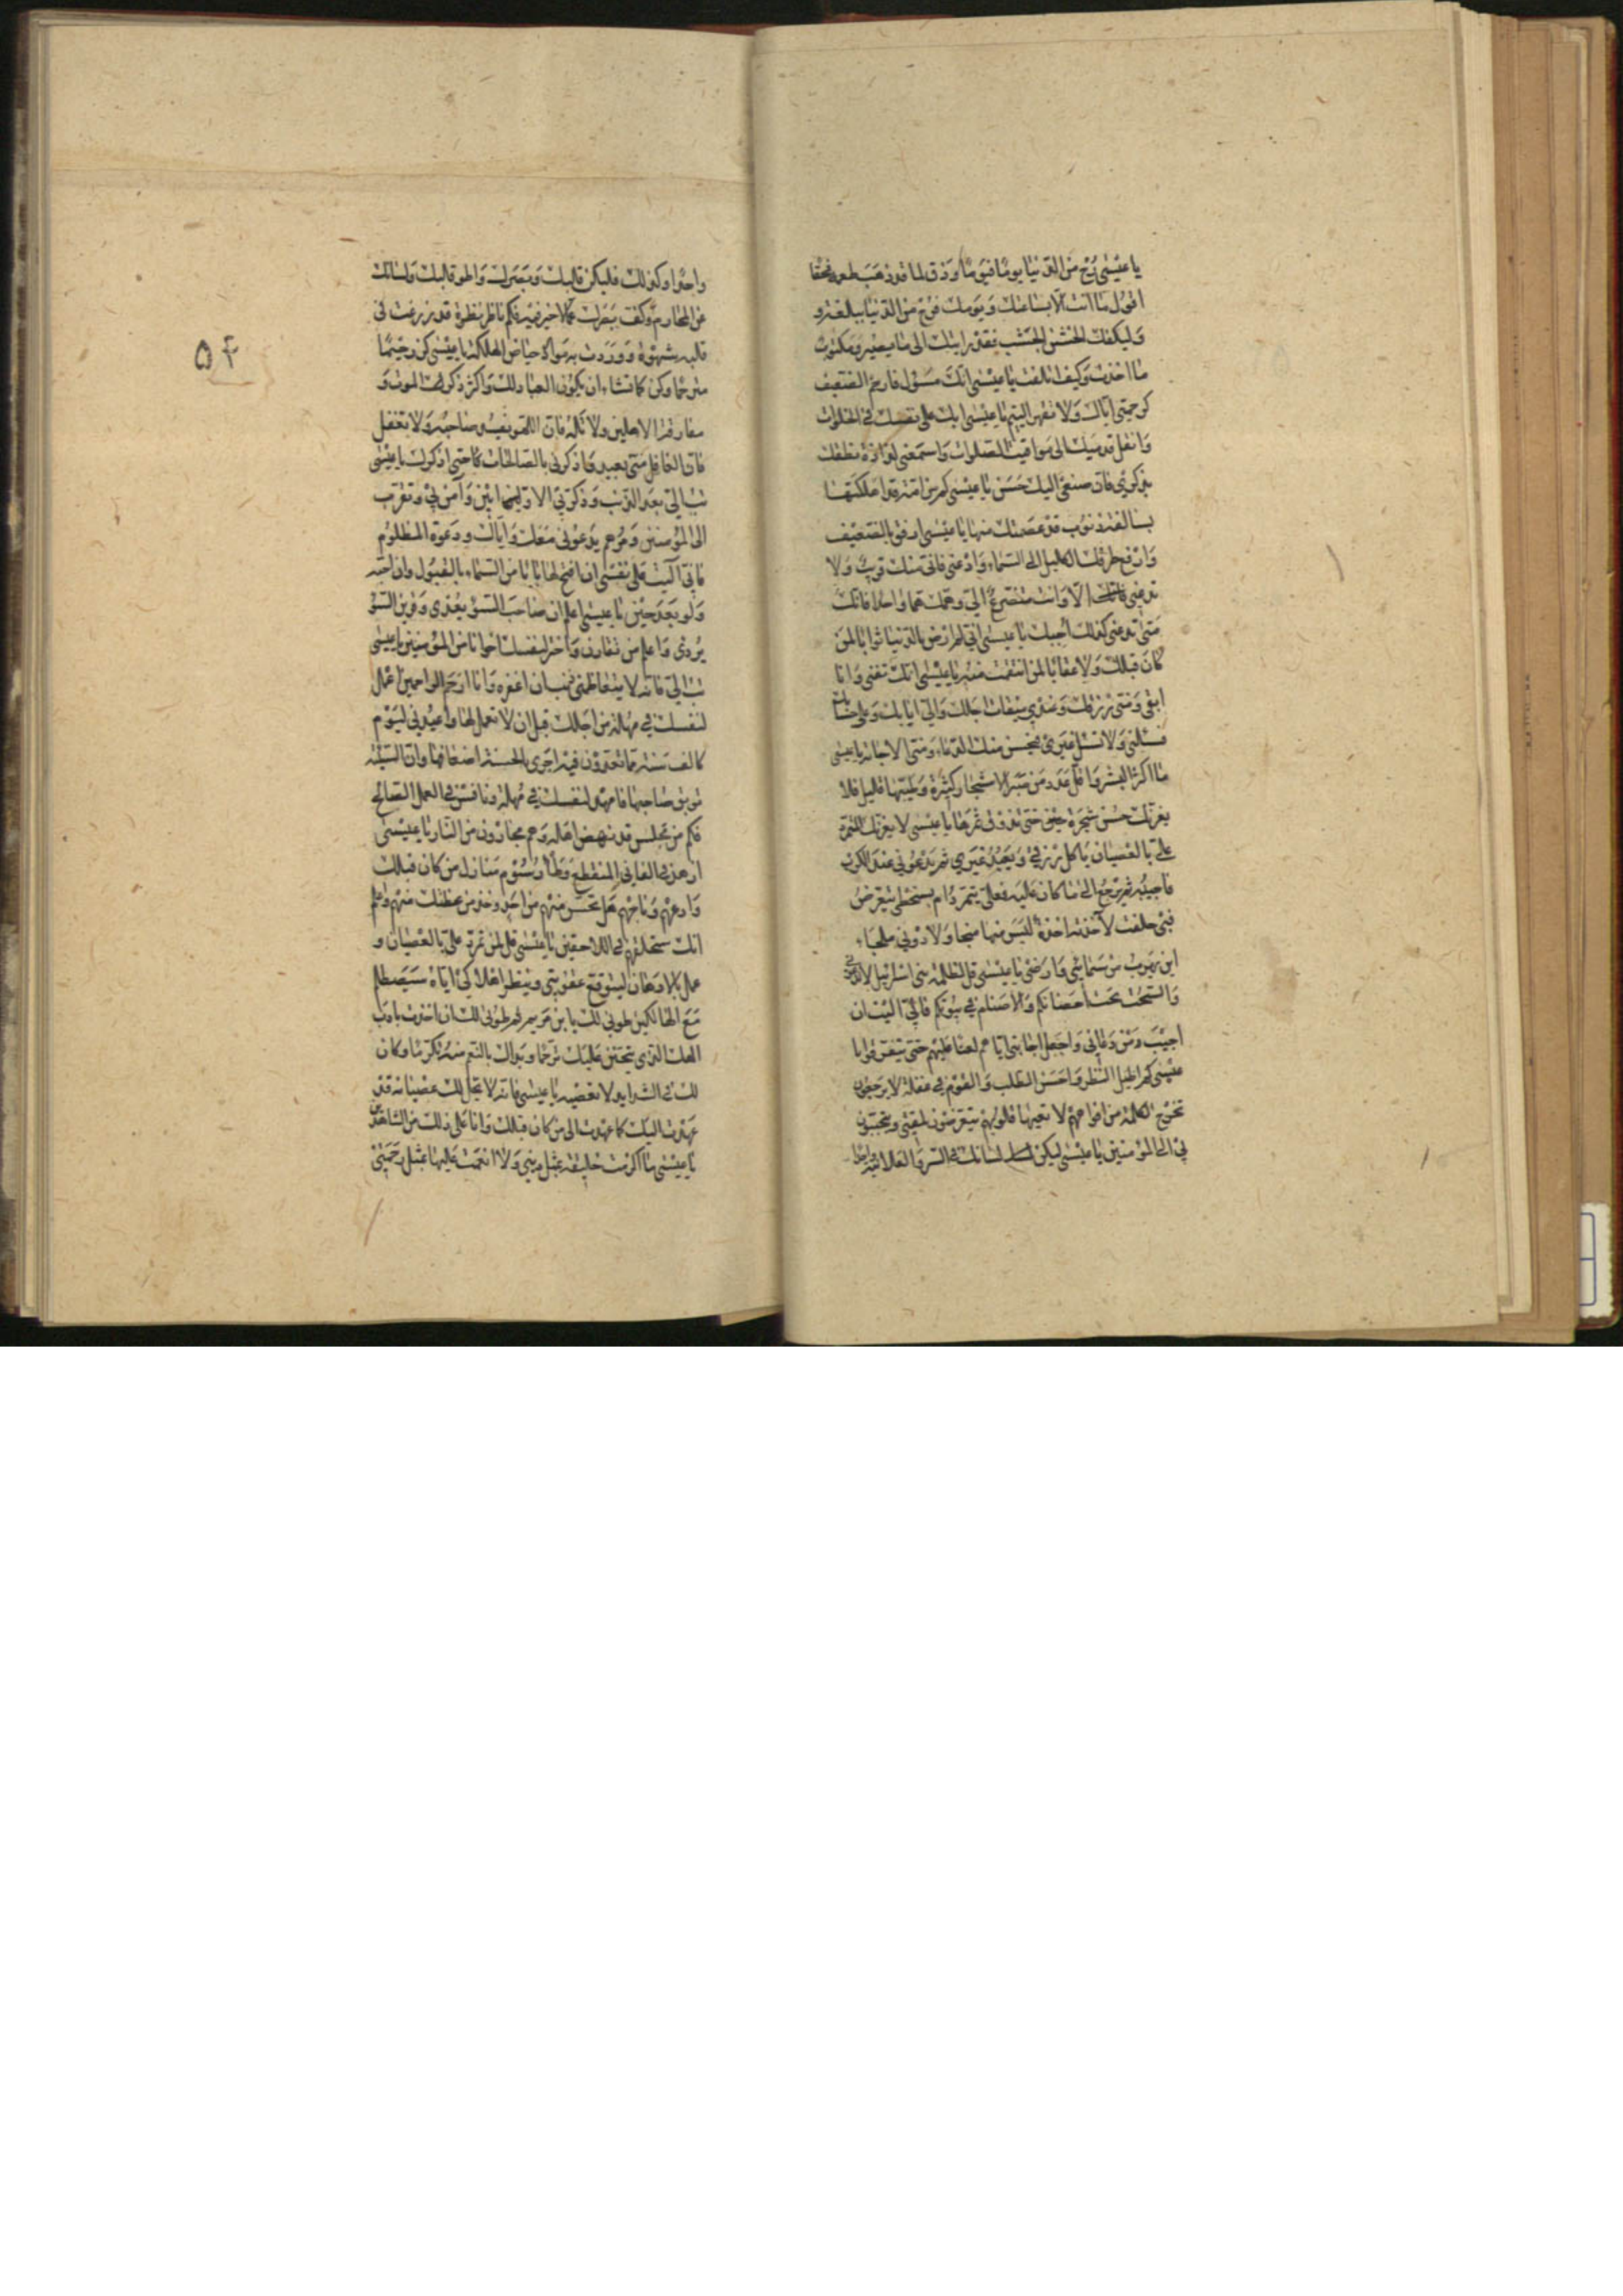 يا عيسى زح من الدنيا يوما فيوما وذق لما قد ذهب طعمه فحقا
اقول ما انت الا بساعتك ويومك فرح من الدنيا ببلغة و
وليكفك الخشن الجشب فقد رايت الى ما يصير ومكتوب
ما اخذت وكيف اتلفت يا عيسى انك مسؤل فارحم الضعيف
كرحمتي اياك ولا تقهر اليتيم يا عيسى ابك على نفسك في الخلوات
وانقل قدميك الى مواقيت الصلوات واسمعني لذاذة نطقك
بذكري فان صنيعي اليك حسن يا عيسى كم من امة قد اهلكتها
بسالف ذنوب قد عصمتك منها يا عيسى ارفق بالضعيف
وارفع طرفك الكليل الى السماء وادعني فاني منك قريب ولا
تدعني الا وانت متضرع الي وهمك هما واحدا فانك
متى تدعني كذلك اجبك يا عيسى اني لم ارض بالدنيا ثوابا لمن
كان قبلك ولا عقابا لمن انتقمت منه يا عيسى انك تفنى وانا
ابقى ومني رزقك وعندي ميقات اجلك والي ايابك وعلي حسابك
فسلني ولا تسل غيري فيحسن منك الدعاء ومني الاجابة يا عيسى
ما اكثر البشر واقل عدد من صبر الاشجار كثيرة وطيبها قليل فلا
يغرنك حسن شجرة حتى تذوق ثمرها يا عيسى لا يغرنك المتمرد
علي بالعصيان ياكل رزقي ويعبد غيري ثم يدعوني عند الكرب
فاجيبه ثم يرجع الى ما كان عليه فعلي يتمرد ام بسخطي يتعرض
فبي حلفت لآخذنه اخذة ليس منها منجا ولا دوني ملجاء
اين يهرب من سمائي وارضي يا عيسى قل لظلمة بني اسرائيل لا تدعوني
والسحت تحت احضانكم والاصنام في بيوتكم فاني آليت ان
اجيب من دعاني واجعل اجابتي اياهم لعنا عليهم حتى يتفرقوا يا
عيسى كم اطيل النظر واحسن الطلب والقوم في غفلة لا يرجعون
تخرج الكلمة من افواههم لا تعيها قلوبهم يتعرضون لمقتي ويتحببون
بي الى المؤمنين يا عيسى ليكن لسانك في السر والعلانية واحدا
واحدا وكذلك فليكن قلبك وبصرك واطو قلبك ولسانك
عن المحارم وكف بصرك عما لا خير فيه فكم ناظر نظرة قد زرعت في
قلبه شهوة ووردت به موارد حياض الهلكة يا عيسى كن رحيما
مترحما وكن كما تشاء ان يكون العباد لك واكثر ذكرك الموت و
مفارقة الاهلين ولا تله فان اللهو يفسد صاحبه ولا تغفل
فان الغافل مني بعيد واذكرني بالصالحات حتى اذكرك يا عيسى
تب الي بعد الذنب وذكر بي الاوابين وآمن بي وتقرب
الى المؤمنين ومرهم يدعوني معك واياك ودعوة المظلوم
فاني آليت على نفسي ان افتح لها بابا من السماء بالقبول وان اجيبه
ولو بعد حين يا عيسى اعلم ان صاحب السوء يعدي وقرين السوء
يردي واعلم من تقارن واختر لنفسك اخوانا من المؤمنين يا عيسى
تب الي فانه لا يتعاظمني ذنب ان اغفره وانا ارحم الراحمين اعمل
لنفسك في مهلة من اجلك قبل ان لا تعمل لها واعبدني ليوم
كالف سنة مما تعدون فيه اجزي بالحسنة اضعافها وان السيئة
توبق صاحبها فامهد لنفسك في مهلة ونافس في العمل الصالح
فكم من مجلس قد نهض اهله وهم مجارون من النار يا عيسى
ازهد في الفاني المنقطع وطأ رسوم منازل من كان قبلك
وادعهم وناجهم هل تحس منهم من احد وخذ موعظتك منهم واعلم
انك ستلحقهم في اللاحقين يا عيسى قل لمن تمرد علي بالعصيان و
عمل بالادهان ليتوقع عقوبتي وينتظر اهلاكي اياه سيصطلم
مع الهالكين طوبى لك يا ابن مريم ثم طوبى لك ان اخذت بادب
الهك الذي يتحنن عليك ترحما وبداك بالنعم منه تكرما وكان
لك في الشدايد لا تعصه يا عيسى فانه لا يحل لك عصيانه قد
عهدت اليك كما عهدت الى من كان قبلك وانا على ذلك من الشاهدين
يا عيسى ما اكرمت خليقة بمثل ديني ولا انعمت عليها بمثل رحمتي
۵۴